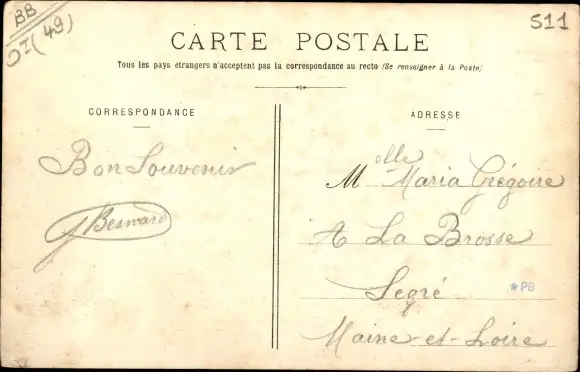 BB
(49)
S11
CARTE POSTALE
Tous les pays etrangers n'acceptent pas la correspondance au recto (Se renseigner à la Poste)
CORRESPONDANCE
ADRESSE
Bon Souvenir
J Besnard
Melle Maria Grégoire
A La Brosse
Segré
★PB
Maine-et-Loire